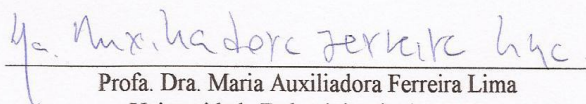 Ma. Auxiliadora Ferreira Lima
Profa. Dra. Maria Auxiliadora Ferreira Lima